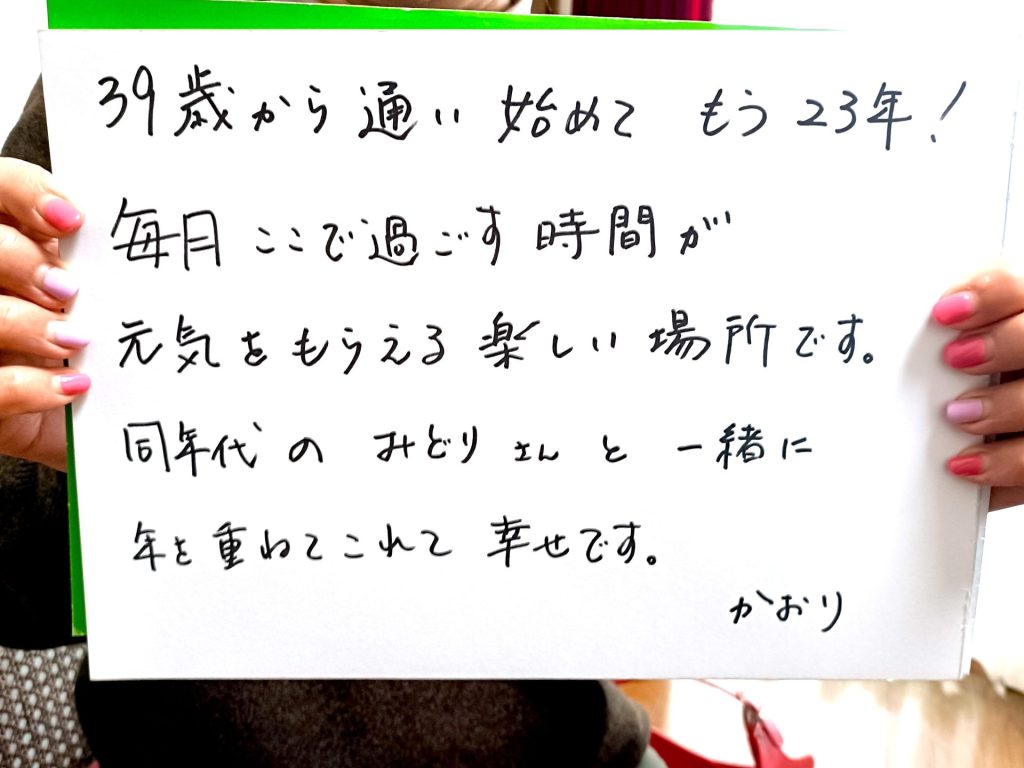 39歳から通い始めて もう23年!
毎月ここで過ごす時間が
元気をもらえる楽しい場所です。
同年代の みどりさんと 一緒に
年を重ねてこれて 幸せです。
かおり